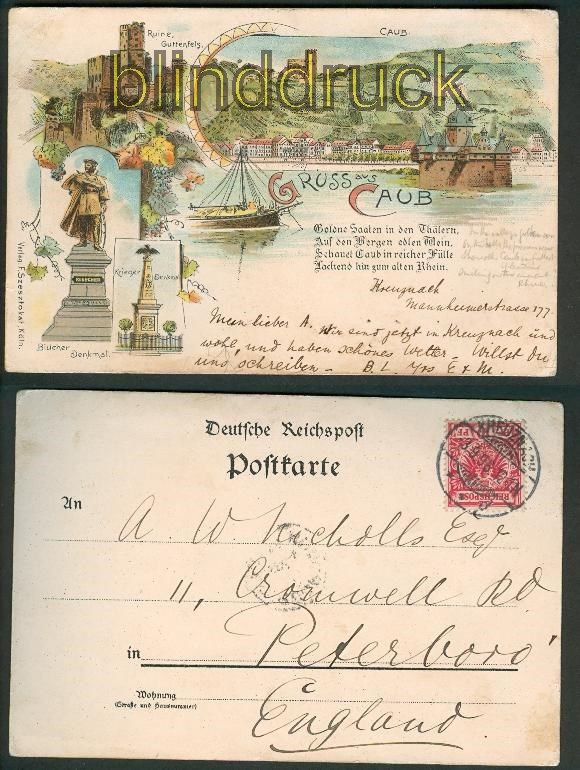 Ruine
Guttenfels.
CAUB.
blinddruck
GRUSS aus
CAUB
Goldne Saaten in den Thälern,
Auf den Bergen edlen Wein,
Schauet Caub in reicher Fülle
Lachend hin zum alten Rhein.
BLUECHER
Krieger
Denkmal
Blücher
Denkmal.
Verlag F. Szesztokat, Köln.
Kreuznach
Mannheimerstrasse 177
Mein lieber A. Wir sind jetzt in Kreuznach und
wohl, und haben schönes Wetter – Willst Du
uns schreiben – B. L. Yrs E & M.
Deutsche Reichspost
Postkarte
An
A. W. Nicholls Esq
11, Cromwell Rd.
in Peterboro'
Wohnung
(Straße und Hausnummer)
England
REICHSPOST
KREUZNACH